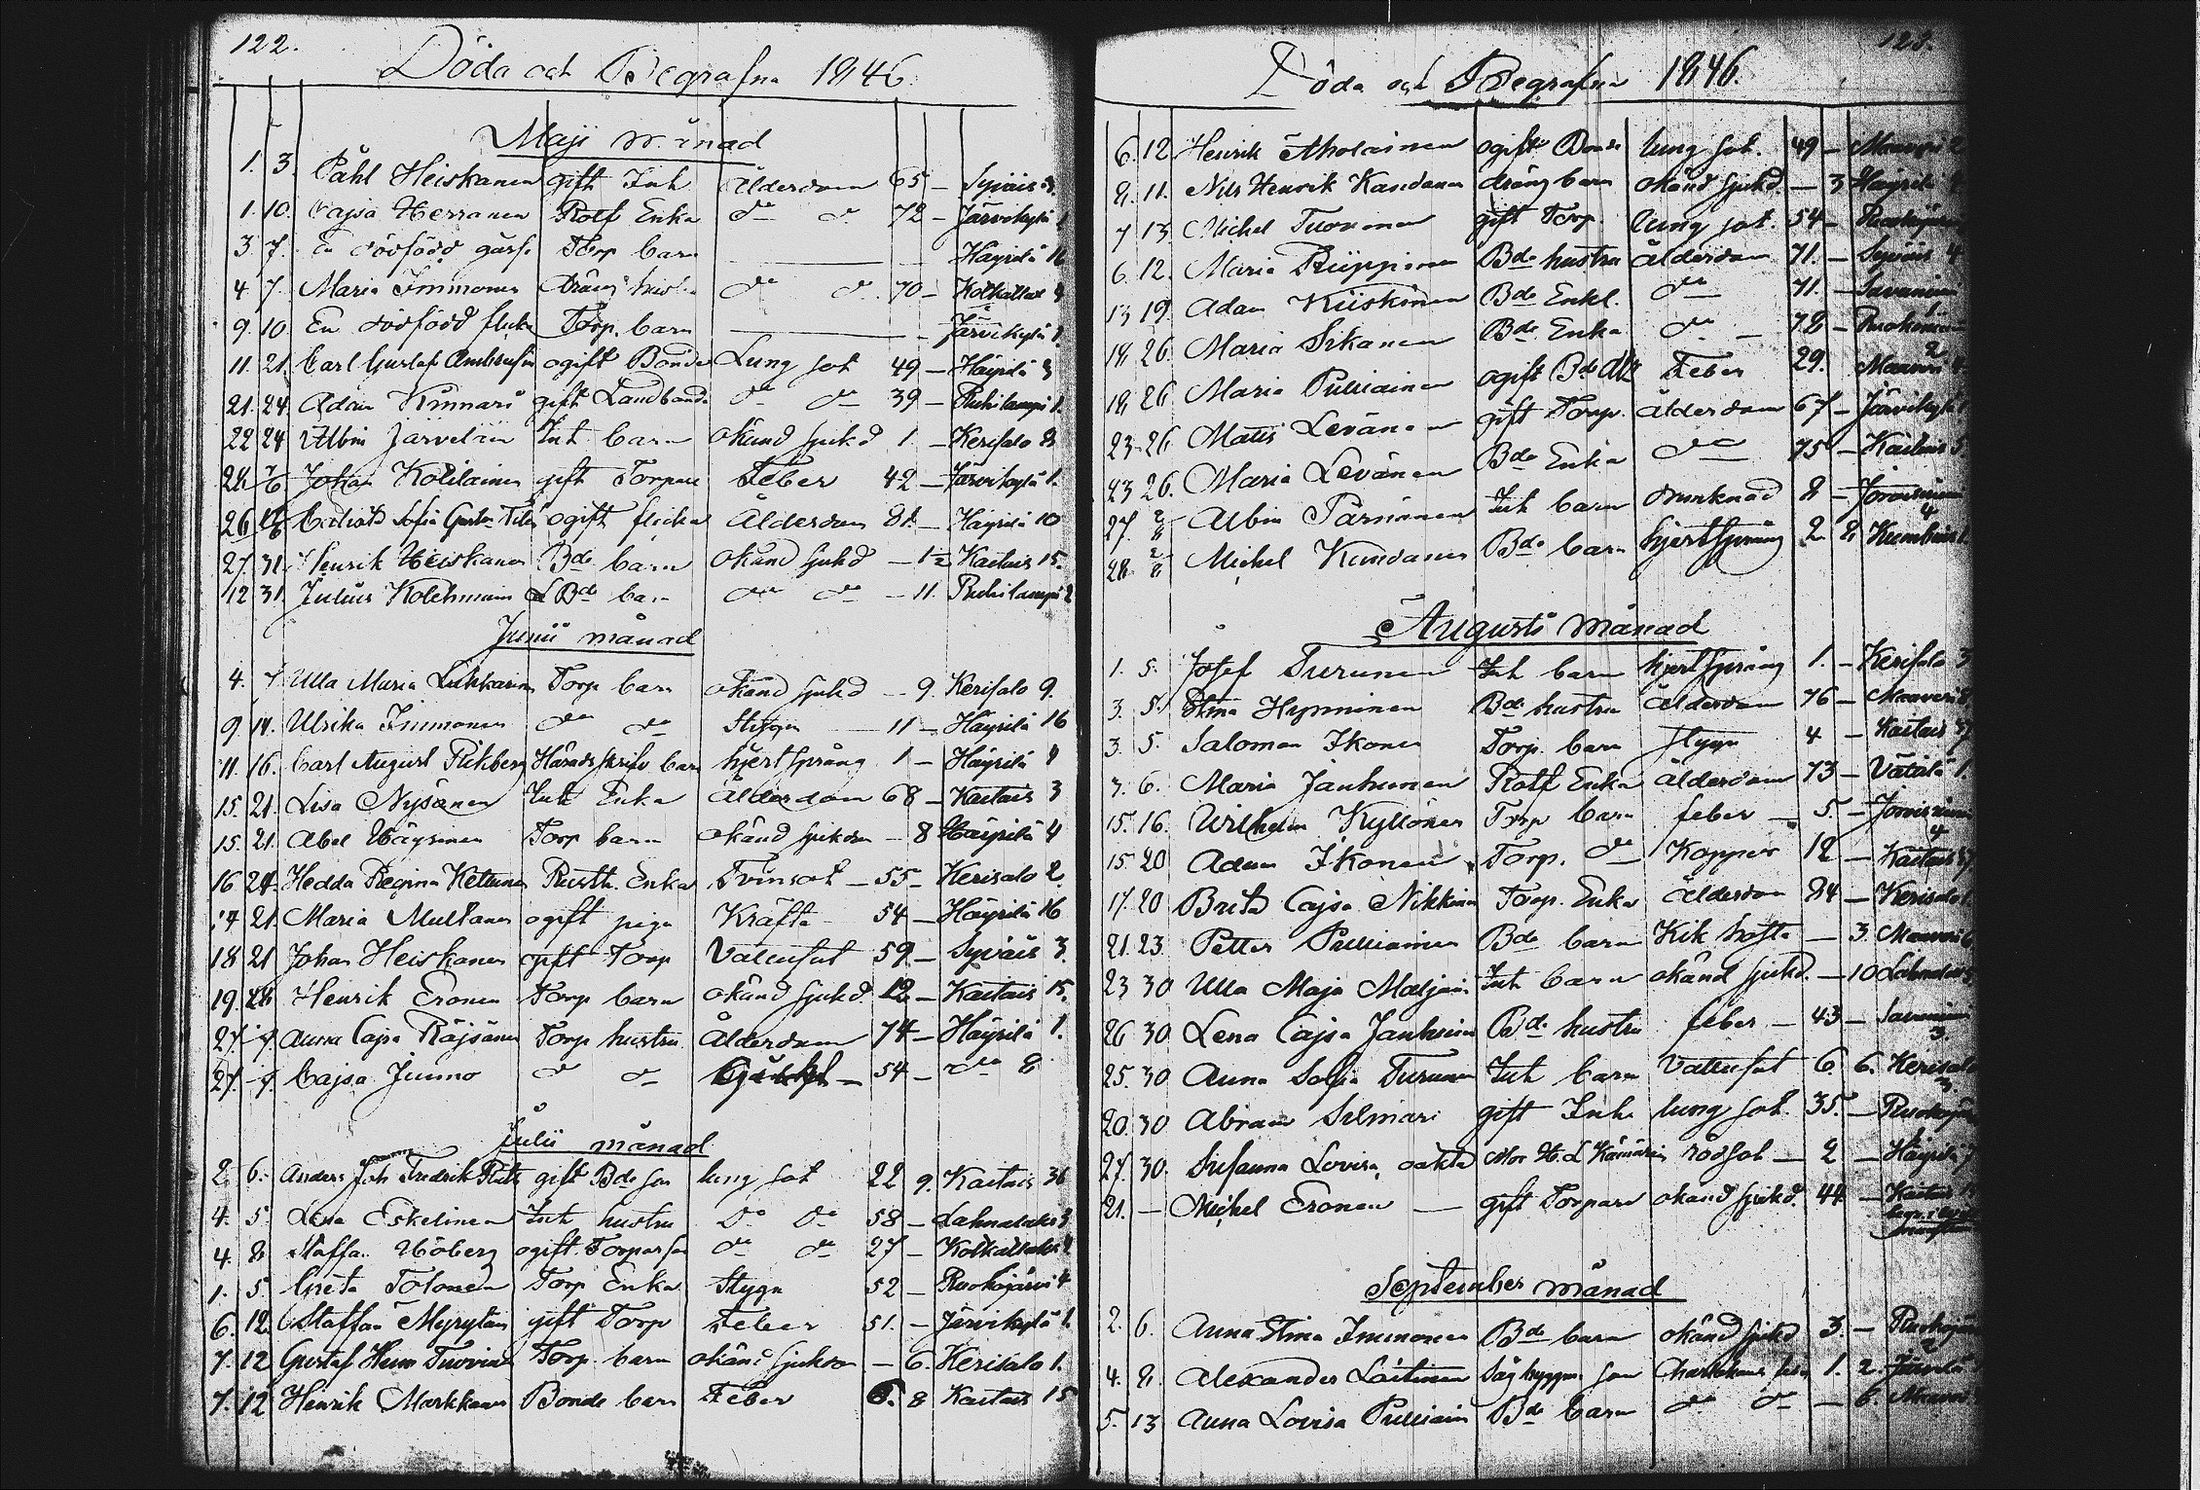 122.
Döda och Begrafna 1846.
Maji månad
1. 3. Påhl Heiskanen gift Inh Ålderdom 65 – Syväis 3.
1. 10. Cajsa Herranen Rotf Enka do do 72 – Järvikylä 1
3. 7. En dödfödd gosse Torp barn — Häyrilä 16
4 7. Maria Immonen dräng hustru do do 70 – Kolkallax 4
9. 10. En dödfödd flicka Torp. barn — Järvikylä 1.
11. 21. Carl Gustaf ogift Bonde Lung sot 49 – Häyrilä 3
21. 24. Adam Kinnari gift Landbonde do do 39 – Ruhilampi 1.
22 24 Albin Järveläin Inh barn okänd sjukd 1. – Kerisalo 8
24 7/6 Johan Kolilainen gift Torpare Feber 42 – Järvikylä 1.
26 Sofia ogift flicka Ålderdom 81. – Häyrilä 10
27. 31. Henrik Heiskanen Bde barn okänd sjukd – 1½ Kaitais 15.
12 31. Julius Kolehmain L Bde barn do do – 11. Ruhilampi 2
Junii månad
4. 7. Ulla Maria Liukkarinen Torp barn okänd sjukd – 9. Kerisalo 9.
9. 14. Ulrika Immonen do do Stygn – 11 – Häyrilä 16
11. 16. Carl August Häradsskrifv barn hjertsprång 1 – Häyrilä 4
15. 21. Lisa Nysänen Inh Enka Ålderdom 68 – Kaitais 3
15. 21. Abel Häyrinen Torp barn okänd sjukdom – 8 Häyrilä 4
16 24. Hedda Regina Kettunen Rusth. Enka Tvinsot – 55 – Kerisalo 2.
17 21. Maria Multanen ogift piga Kräfta 54 – Häyrilä 16
18 21 Johan Heiskanen gift Torp Vattusot 59 – Syväis 3.
19. 28 Henrik Eronen Torp barn okänd sjukd. 12 – Kaitais 15.
27. Anna Cajsa Räisänen Torp hustru Ålderdom 74 – Häyrilä 1.
27. Cajsa Juuno do do 54 – do 8
Julii månad
2. 6. Anders Joh Fredrik gift Bde son lung sot 22 9. Kaitais 36
4. 5. Lena Eskelinen Inh hustru Do Do 58 – Lahnalaks 3
4. 8 Staffan Höberg ogift Torpar son do do 27 – Kolkallaks 4
1. 5. Greta Tolonen Torp Enka Stygn 52 – Ruokojärvi 4
6. 12. Staffan Myrytäin gift Torp Feber 51. – Järvikylä 1.
7. 12 Gustaf Henr Tuovinen Torp. barn okänd sjukdom – 6. Kerisalo 1.
7. 12 Henrik Markkanen Bonde barn Feber 6. 8 Kaitais 15
123.
Döda och Begrafna 1846.
6. 12. Henrik Aholainen ogift Bonde lung sot. 49 – Maaveri 2
8. 11. Nils Henrik Kandanen dräng barn okänd sjukd. – 3 Häyrilä
7 13. Michel Tuovinen gift Torp. lung sot. 54 – Ruokojärvi
6. 12. Maria Bde hustru ålderdom 71. – Syväis 4
13 19. Adam Kiiskinen Bde Enkl. do 71. – Savunimi
18. 26. Maria Sikanen Bde Enka do – 72 – Ruokojärvi 2
18. 26. Maria Pulliainen ogift Bde dtr Feber 29. Maaveri 4
23. 26 Matts Levänen gift Torp. ålderdom 67 – Järvikylä 1
23 26. Maria Levänen Bde Enka do 75 – Kaitais 5
27. 2/8 Albin Pärninen Inh barn drunknad 8 – Joroisniemi 4
28 2/8 Michel Kandanen Bde barn hjertsprång 2 8 1.
Augusti månad
1. 5. Josef Turunen Inh barn hjertsprång 1. – Kerisalo 3
3. 5. Stina Hynninen Bde hustru Ålderdom 76 – Maaveri 8
3. 5. Salomon Ikonen Torp. barn Stygn 4 – Kaitais 37
3. 6. Maria Janhunen Rotf Enka ålderdom 73 – Vätälä 1.
15. 16. Wilhelm Kyllönen Torp barn feber – 5. – Joroisniemi 4
15 20 Adam Ikonen Torp. do Koppor 12 – Kaitais 37
17. 20 Brita Cajsa Nikkinen Torp. Enka ålderdom 84 – Kerisalo 1.
21. 23. Petter Pulliainen Bde barn Kik hosta – 3. Maaveri 6
23 30 Ulla Maja Inh barn okänd sjukd. – 10 Lahnalaks 3
26 30. Lena Cajsa Janhunen Bde hustru feber – 43 – Savunimi 3.
25. 30 Anna Sofia Turunen Inh barn Vattusot 6 6. Kerisalo 3.
20. 30 Abram Silmari gift Inh. lung sot. 35. – Ruokojärvi
27. 30. Susanna Lovisa, oäkta rödsot – 2 – Häyrilä
21. – Michel Eronen — gift Torpare okänd sjukd. 44 – Kaitais
September månad
2. 6. Anna Stina Immonen Bde barn okänd sjukd 3 – Ruokojärvi 2
4. 8. Alexander Laitinen Sågbyggm son 1. 2 Järvikylä
5. 13 Anna Lovisa Pulliain Bde barn do do – 6. Maaveri